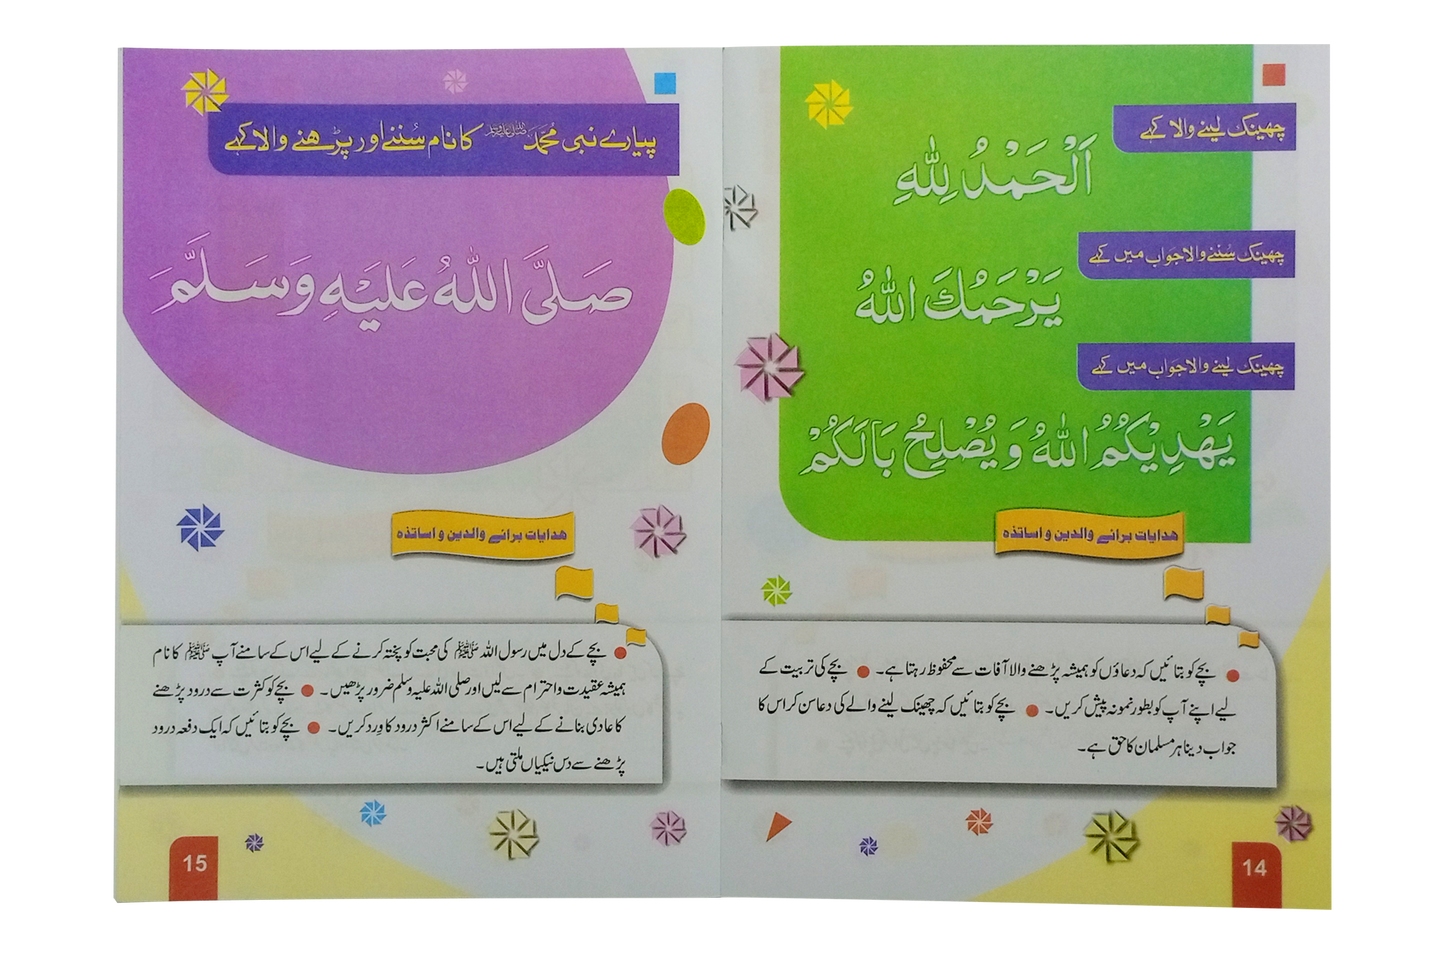 چھینک لینے والا کہے
اَلْحَمْدُ لِلّٰهِ
چھینک سُننے والا جواب میں کہے
يَرْحَمُكَ اللّٰهُ
چھینک لینے والا جواب میں کہے
يَهْدِيْكُمُ اللّٰهُ وَيُصْلِحُ بَالَكُمْ
ھدایات برائے والدین و اساتذہ
● بچے کو بتائیں کہ دعاؤں کو ہمیشہ پڑھنے والا آفات سے محفوظ رہتا ہے۔ ● بچے کی تربیت کے
لیے اپنے آپ کو بطور نمونہ پیش کریں۔ ● بچے کو بتائیں کہ چھینک لینے والے کی دعا سن کر اس کا
جواب دینا ہر مسلمان کا حق ہے۔
14
پیارے نبی مُحَمَّد ﷺ کا نام سُننے اور پڑھنے والا کہے
صَلَّى اللّٰهُ عَلَيْهِ وَسَلَّمَ
ھدایات برائے والدین و اساتذہ
● بچے کے دل میں رسول اللہ ﷺ کی محبت کو پختہ کرنے کے لیے اس کے سامنے آپ ﷺ کا نام
ہمیشہ عقیدت و احترام سے لیں اور صلی اللہ علیہ وسلم ضرور پڑھیں۔ ● بچے کو کثرت سے درود پڑھنے
کا عادی بنانے کے لیے اس کے سامنے اکثر درود کا وِرد کریں۔ ● بچے کو بتائیں کہ ایک دفعہ درود
پڑھنے سے دس نیکیاں ملتی ہیں۔
15